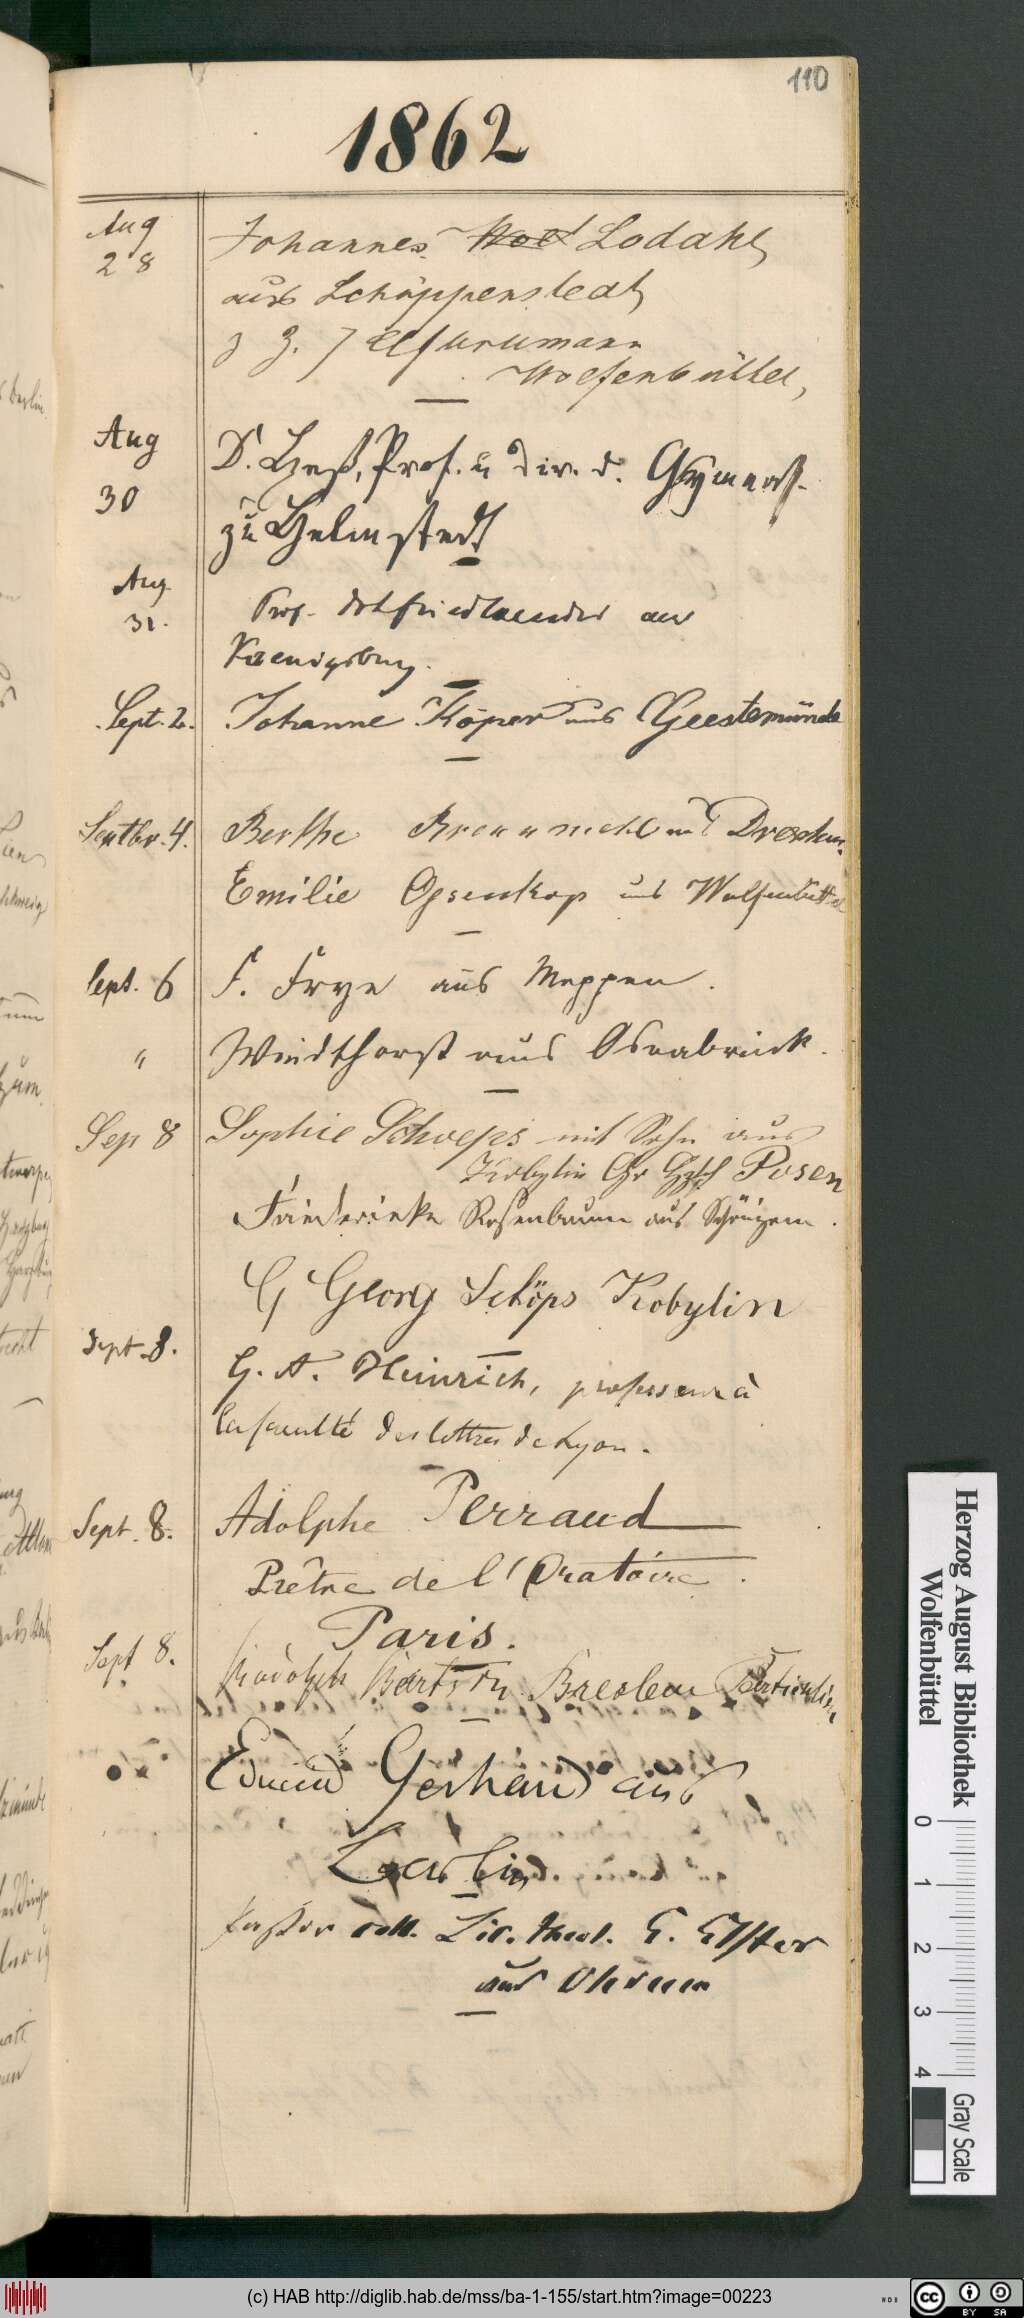 110
1862
Aug
28
Johannes Lodahl
aus Schöppenstedt
z Z.
Wolfenbüttel,
Aug
30
D. Heß, Prof. u. Dir. d. Gymnas.
zu Helmstedt
Aug.
31.
Prof. Friedlaender aus
Koenigsberg.
Sept. 2.
Johanne Köper aus Geestemünde
Septbr. 4.
Berthe aus Dresden.
Emilie Opsenkop aus Wolfenbüttel
Sept. 6
F. Frye aus Meppen.
"
Windthorst aus Osnabrück.
Sep 8
Sophie Schoeps mit Sohn aus
Kobylin Gr Hzth Posen
Friederieke Rosenbaum aus Schöningen.
G Georg Schöps Kobylin
Sept. 8.
G. A. Heinrich, professeur à
la faculté des lettres de Lyon.
Sept. 8.
Adolphe Perraud
Prêtre de l'Oratoire.
Paris.
Sept 8.
Rudolph Bartsch Breslau Particulier
Edmund Gerhard aus
Berlin.
Pastor coll. Lic. theol. E. Elster
aus Ohrum
Herzog August Bibliothek
Wolfenbüttel
0 1 2 3 4
Gray Scale
(c) HAB http://diglib.hab.de/mss/ba-1-155/start.htm?image=00223
cc BY SA